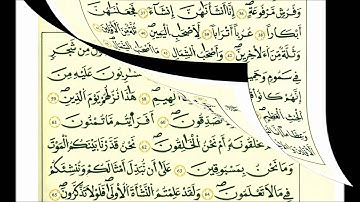 وَفُرُشٍ مَّرْفُوعَةٍ ٣٤ إِنَّا أَنشَأْنَاهُنَّ إِنشَاءً ٣٥ فَجَعَلْنَاهُنَّ
أَبْكَارًا ٣٦ عُرُبًا أَتْرَابًا ٣٧ لِّأَصْحَابِ الْيَمِينِ ٣٨ ثُلَّةٌ مِّنَ الْأَوَّلِينَ
وَثُلَّةٌ مِّنَ الْآخِرِينَ ٤٠ وَأَصْحَابُ الشِّمَالِ
فِي سَمُومٍ وَحَمِيمٍ
إِنَّهُمْ كَانُوا
الْحِنثِ الْعَظِيمِ
مِّن شَجَرٍ
عَلَيْهِ مِنَ
الْهِيمِ ٥٥ هَٰذَا نُزُلُهُمْ يَوْمَ الدِّينِ ٥٦
تُصَدِّقُونَ ٥٧ أَفَرَأَيْتُم مَّا تُمْنُونَ ٥٨
تَخْلُقُونَهُ أَمْ نَحْنُ الْخَالِقُونَ ٥٩ نَحْنُ قَدَّرْنَا بَيْنَكُمُ الْمَوْتَ
وَمَا نَحْنُ بِمَسْبُوقِينَ ٦٠ عَلَىٰ أَن نُّبَدِّلَ أَمْثَالَكُمْ وَنُنشِئَكُمْ
فِي مَا لَا تَعْلَمُونَ ٦١ وَلَقَدْ عَلِمْتُمُ النَّشْأَةَ الْأُولَىٰ فَلَوْلَا تَذَكَّرُونَ